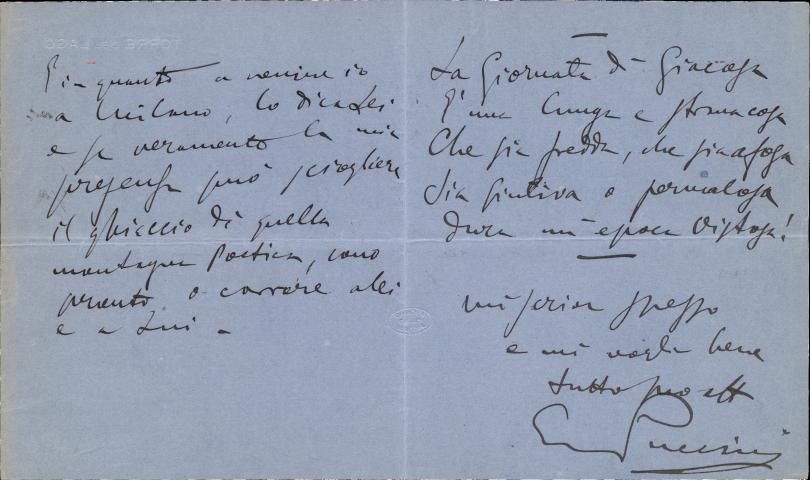 TORRE DEL LAGO
in quanto a venire io
a Milano, lo dica Lei
e se veramente la mia
presenza può sciogliere
il ghiaccio di quella
montagna Poetica, sono
pronto a correre a lei
e a Lui –
La Giornata di Giacosa
È una lunga e strana cosa
Che sia fredda, che sia afosa
Sia giuliva o permalosa
Dura un' epoca vistosa!
mi scriva spesso
e mi voglia bene
tutto suo aff
Puccini